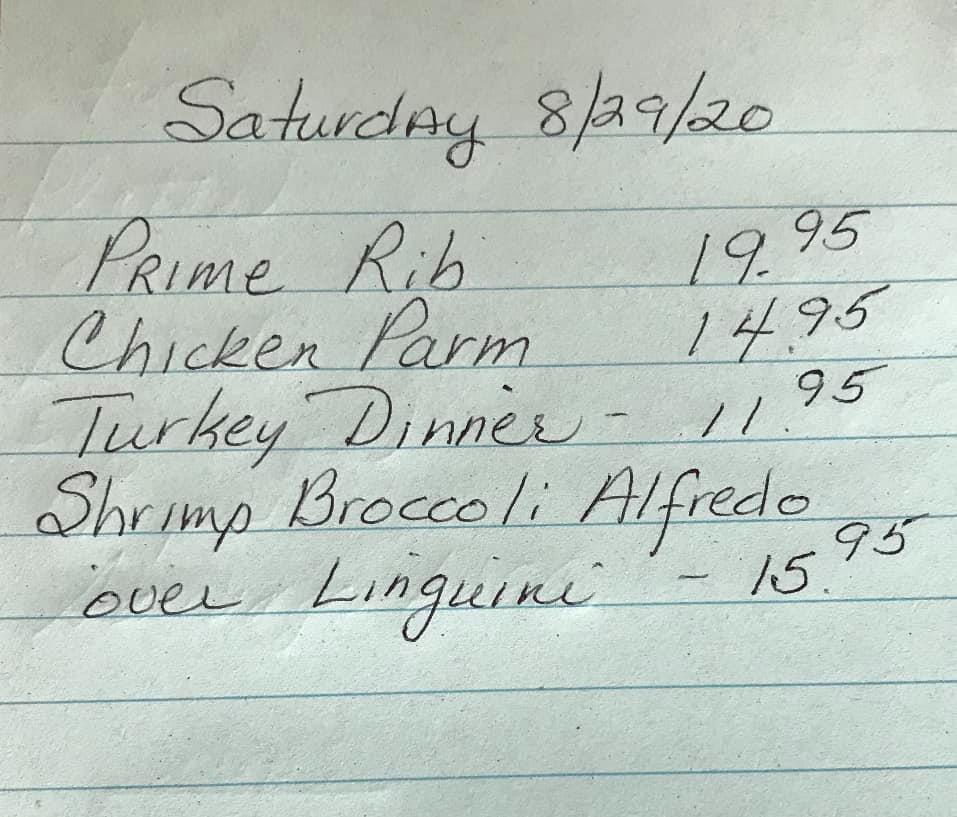 Saturday 8/29/20
Prime Rib 19.95
Chicken Parm 14.95
Turkey Dinner - 11.95
Shrimp Broccoli Alfredo
over Linguini - 15.95